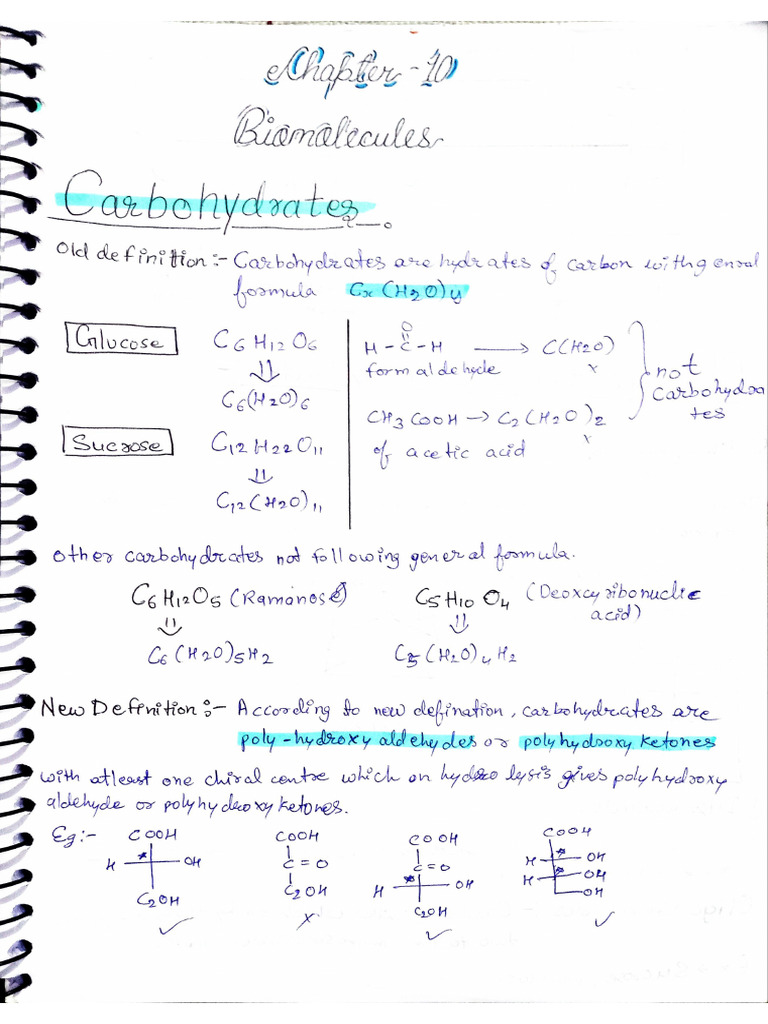 Chapter - 10
Biomolecules
Carbohydrates
Old definition :- Carbohydrates are hydrates of carbon with genral
formula Cx(H2O)y
Glucose C6H12O6
⇓
C6(H2O)6
Sucrose C12H22O11
⇓
C12(H2O)11
O
H - C - H → C(H2O)
formaldehyde x
CH3COOH → C2(H2O)2
x
of acetic acid
not
carbohydra
tes
other carbohydrates not following general formula.
C6H12O5 (Ramanose) C5H10O4 (Deoxcyribonuclic
acid)
⇓ ⇓
C6(H2O)5H2 C5(H2O)4H2
New Definition :- According to new defination, carbohydrates are
poly-hydroxy aldehydes or polyhydroxy ketones
with atleast one chiral centre which on hydrolysis gives polyhydroxy
aldehyde or polyhydroxy ketones.
Eg :- COOH COOH COOH COOH
H * OH C = O C = O H * OH
C2OH C2OH H * OH H * OH
C2OH OH
✓ x ✓ ✓